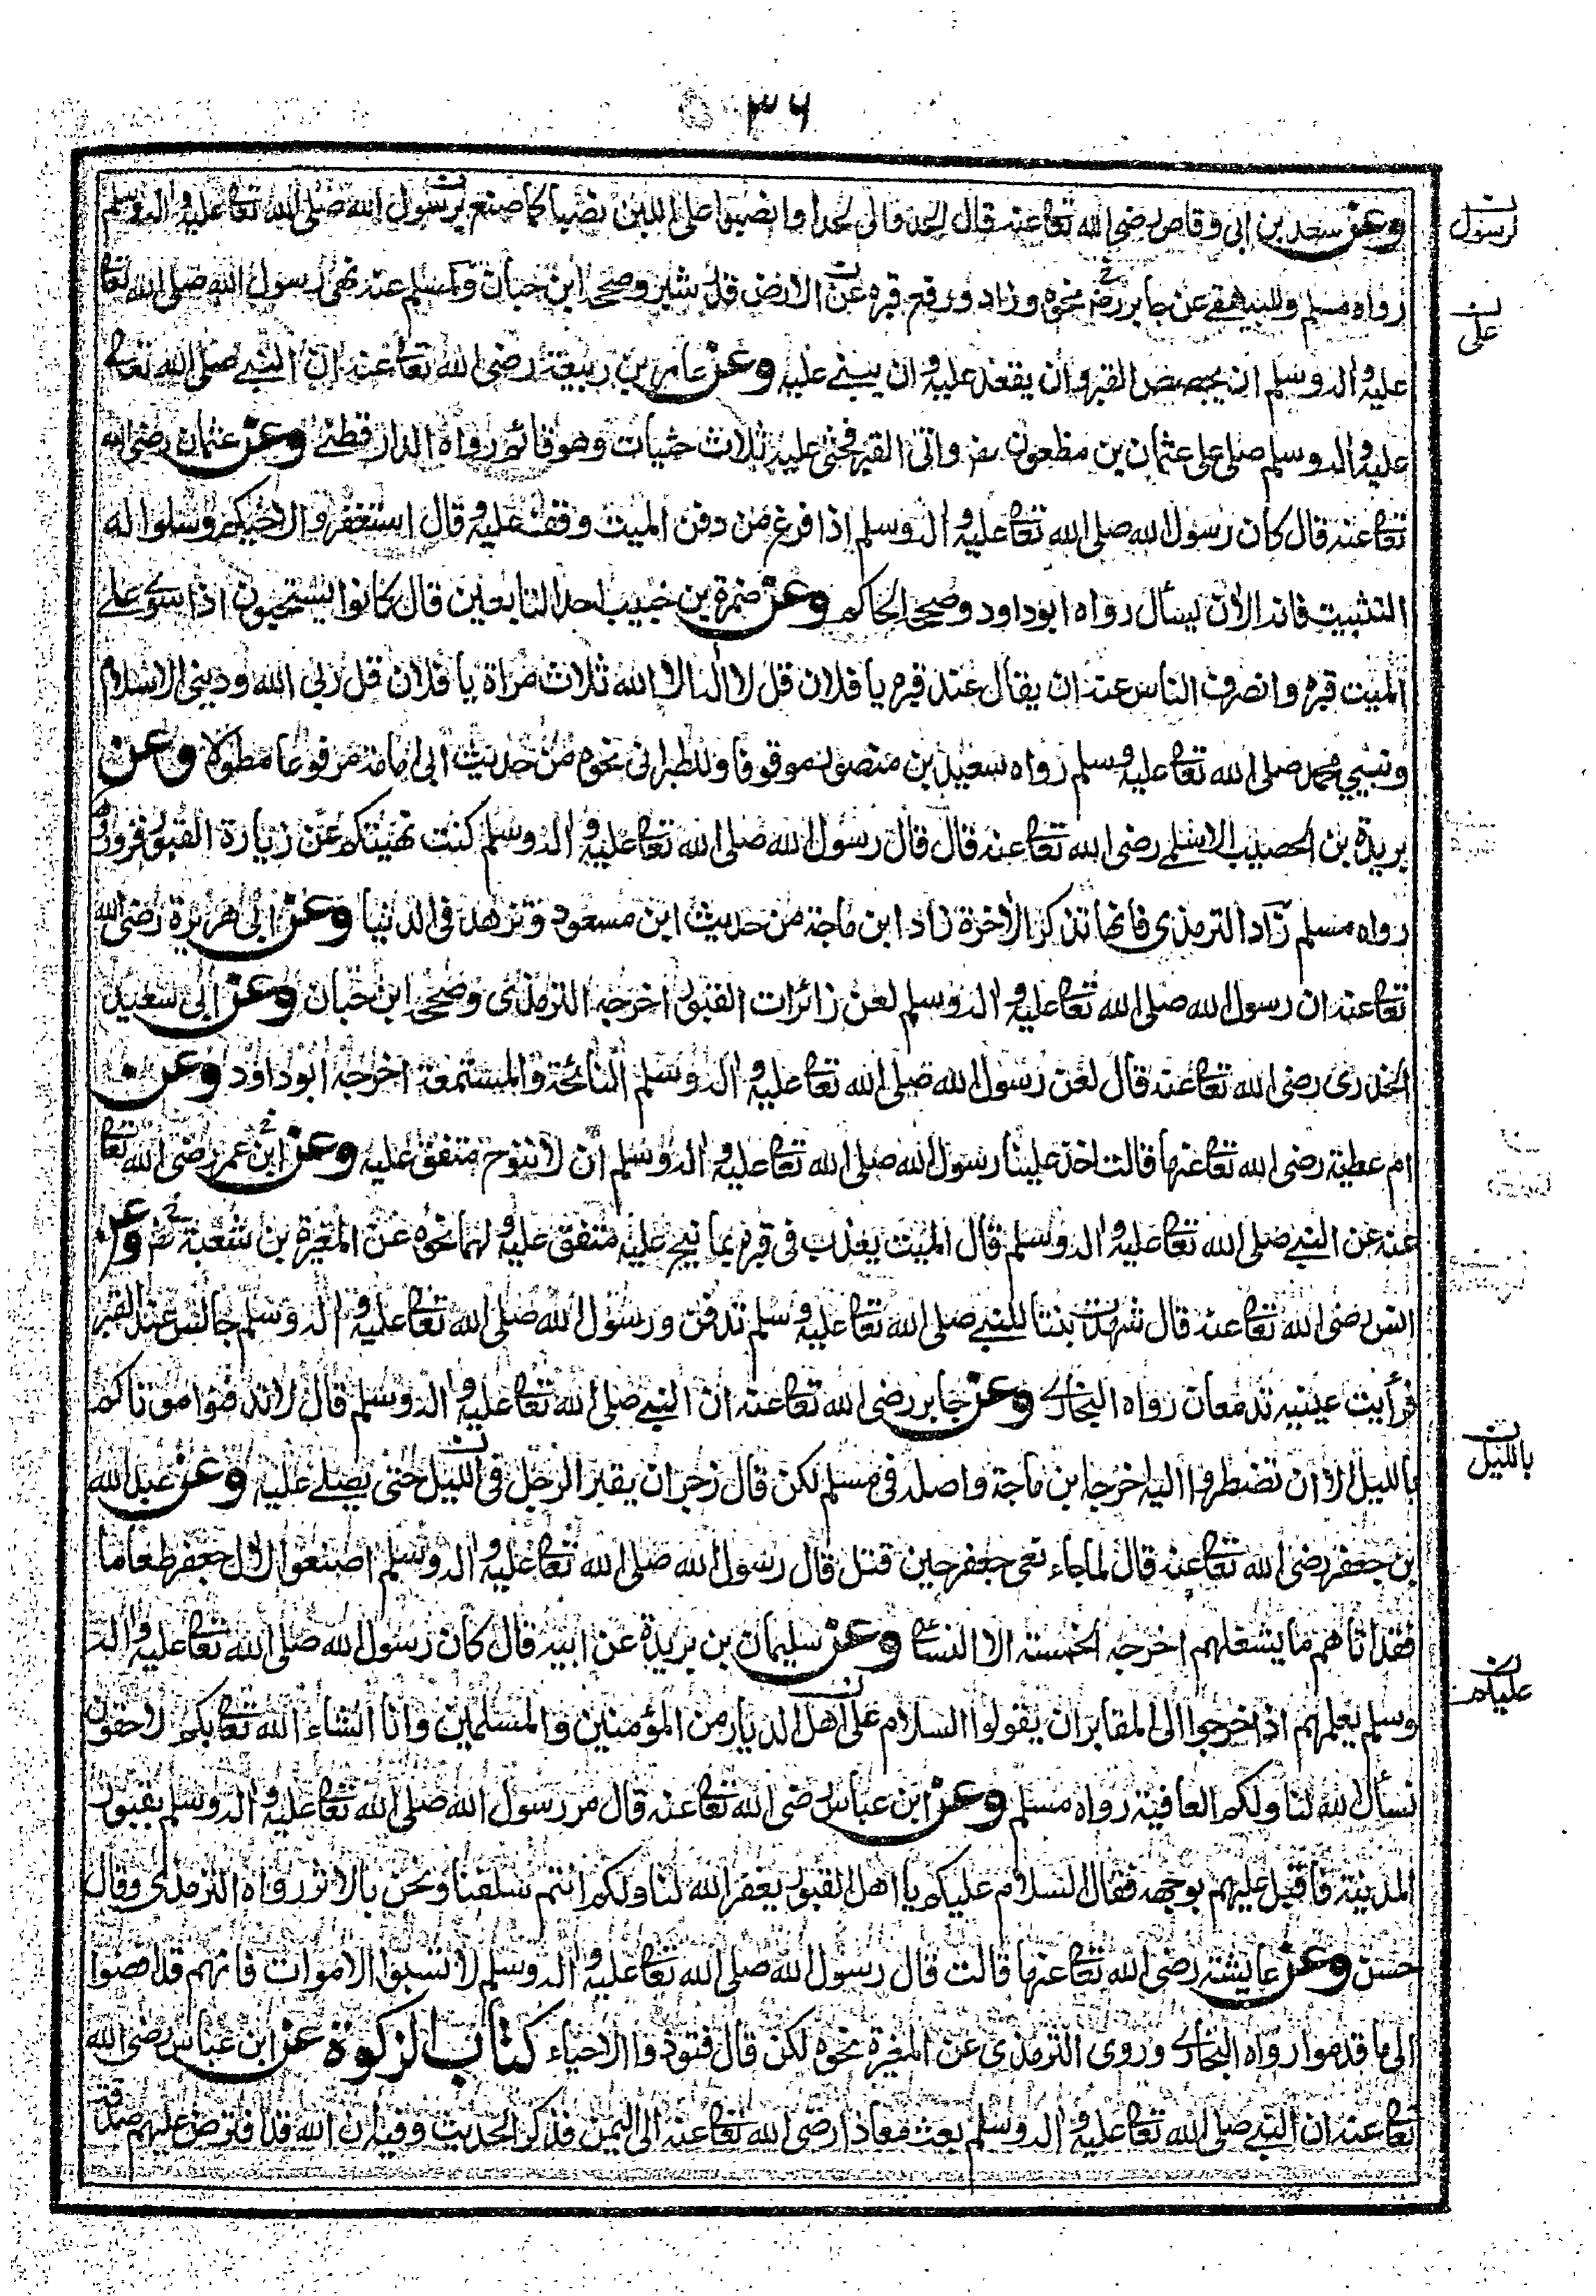 ٣٦
وعن سعد بن ابی وقاص رضی الله تعا عنه قال الحدوالی لحدا وانصبوا علی اللبن نصبا کما صنع برسول الله صلی الله تعا علیه واله وسلم
لرسول
رواه مسلم وللبیهقے عن جابر رضـ نحوه وزاد ورفع قبره عن الارض قدر شبر وصححه ابن حبان ولمسلم عنه نهی رسول الله صلی الله تعا
علی
علیه واله وسلم ان یجصص القبر وان یقعد علیه وان یبنے علیه وعن عامر بن ربیعة رضی الله تعا عنه ان النبے صلی الله تعا
علیه واله وسلم صلی علی عثمان بن مظعون رضـ واتی القبر فحثی علیه ثلاث حثیات وهو قائم رواه الدارقطنے وعن عثمان رضی الله
تعا عنه قال کان رسول الله صلی الله تعا علیه واله وسلم اذا فرغ من دفن المیت وقف علیه وقال استغفروا لاخیکم وسلوا له
التثبیت فانه الآن یسأل رواه ابوداود وصححه الحاکم وعن ضمرة بن حبیب احد التابعین قال کانوا یستحبون اذا سوے علے
المیت قبره وانصرف الناس عنه ان یقال عند قبره یا فلان قل لا اله الا الله ثلاث مراة یا فلان قل ربی الله ودینی الاسلام
ونبیی محمد صلی الله تعا علیه وسلم رواه سعید بن منصور موقوفا وللطبرانی نحوه من حدیث ابی امامة مرفوعا مطولا وعن
بریدة بن الحصیب الاسلمے رضی الله تعا عنه قال قال رسول الله صلی الله تعا علیه واله وسلم کنت نهیتکم عن زیارة القبور فزوروها
رواه مسلم زاد الترمذی فانها تذکر الاخرة زاد ابن ماجة من حدیث ابن مسعود وتزهد فی الدنیا وعن ابی هریرة رضی الله
تعا عنه ان رسول الله صلی الله تعا علیه واله وسلم لعن زائرات القبور اخرجه الترمذی وصححه ابن حبان وعن ابی سعید
الخدری رضی الله تعا عنه قال لعن رسول الله صلی الله تعا علیه واله وسلم النائحة والمستمعة اخرجه ابوداود وعن
ام عطیة رضی الله تعا عنها قالت اخذ علینا رسول الله صلی الله تعا علیه واله وسلم ان لا ننوح متفق علیه وعن ابن عمر رضی الله تعا
عنه عن النبے صلی الله تعا علیه واله وسلم قال المیت یعذب فی قبره بما نیح علیه متفق علیه ولهما نحوه عن المغیرة بن شعبة رضـ وعن
انس رضی الله تعا عنه قال شهدت بنتا للنبے صلی الله تعا علیه وسلم تدفن ورسول الله صلی الله تعا علیه واله وسلم جالس عند القبر
فرأیت عینیه تدمعان رواه البخاری وعن جابر رضی الله تعا عنه ان النبے صلی الله تعا علیه واله وسلم قال لا تدفنوا موتاکم
باللیل الا ان تضطروا الیه اخرجه ابن ماجة واصله فی مسلم لکن قال زجر ان یقبر الرجل فی اللیل حتی یصلے علیه وعن عبدالله
باللیل
بن جعفر رضی الله تعا عنه قال لما جاء نعی جعفر حین قتل قال رسول الله صلی الله تعا علیه واله وسلم اصنعوا لال جعفر طعاما
فقد اتاهم ما یشغلهم اخرجه الخمسة الا النسائے وعن سلیمان بن بریدة عن ابیه قال کان رسول الله صلی الله تعا علیه واله
علیکم
وسلم یعلمهم اذا خرجوا الی المقابر ان یقولوا السلام علی اهل الدیار من المؤمنین والمسلمین وانا انشاء الله تعا بکم لاحقون
نسأل الله لنا ولکم العافیة رواه مسلم وعن ابن عباس رضی الله تعا عنه قال مر رسول الله صلی الله تعا علیه واله وسلم بقبور
المدینة فاقبل علیهم بوجهه فقال السلام علیکم یا اهل القبور یغفر الله لنا ولکم انتم سلفنا ونحن بالاثر رواه الترمذی وقال
حسن وعن عایشة رضی الله تعا عنها قالت قال رسول الله صلی الله تعا علیه واله وسلم لا تسبوا الاموات فانهم قد افضوا
الی ما قدموا رواه البخاری وروی الترمذی عن المغیرة نحوه لکن قال فتوذوا الاحیاء کتاب الزکوة عن ابن عباس رضی الله
تعا عنه ان النبے صلی الله تعا علیه واله وسلم بعث معاذا رضی الله تعا عنه الی الیمن فذکر الحدیث وفیه ان الله قد افترض علیهم صدقة